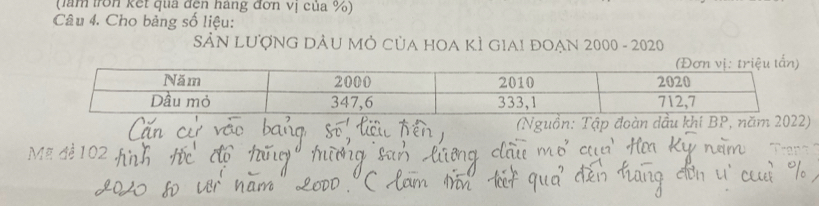 (làm tròn kết quả đến hàng đơn vị của %)
Câu 4. Cho bảng số liệu:
SẢN LƯỢNG DẦU MỎ CỦA HOA KÌ GIAI ĐOẠN 2000 - 2020
(Đơn vị: triệu tấn)
Năm 2000 2010 2020
Dầu mỏ 347,6 333,1 712,7
(Nguồn: Tập đoàn dầu khí BP, năm 2022)
Căn cứ vào bảng số liệu trên,
Mã đề 102 tính tốc độ tăng trưởng sản lượng dầu mỏ của Hoa Kỳ năm
2020 so với năm 2000. (làm tròn kết quả đến hàng đơn vị của %)